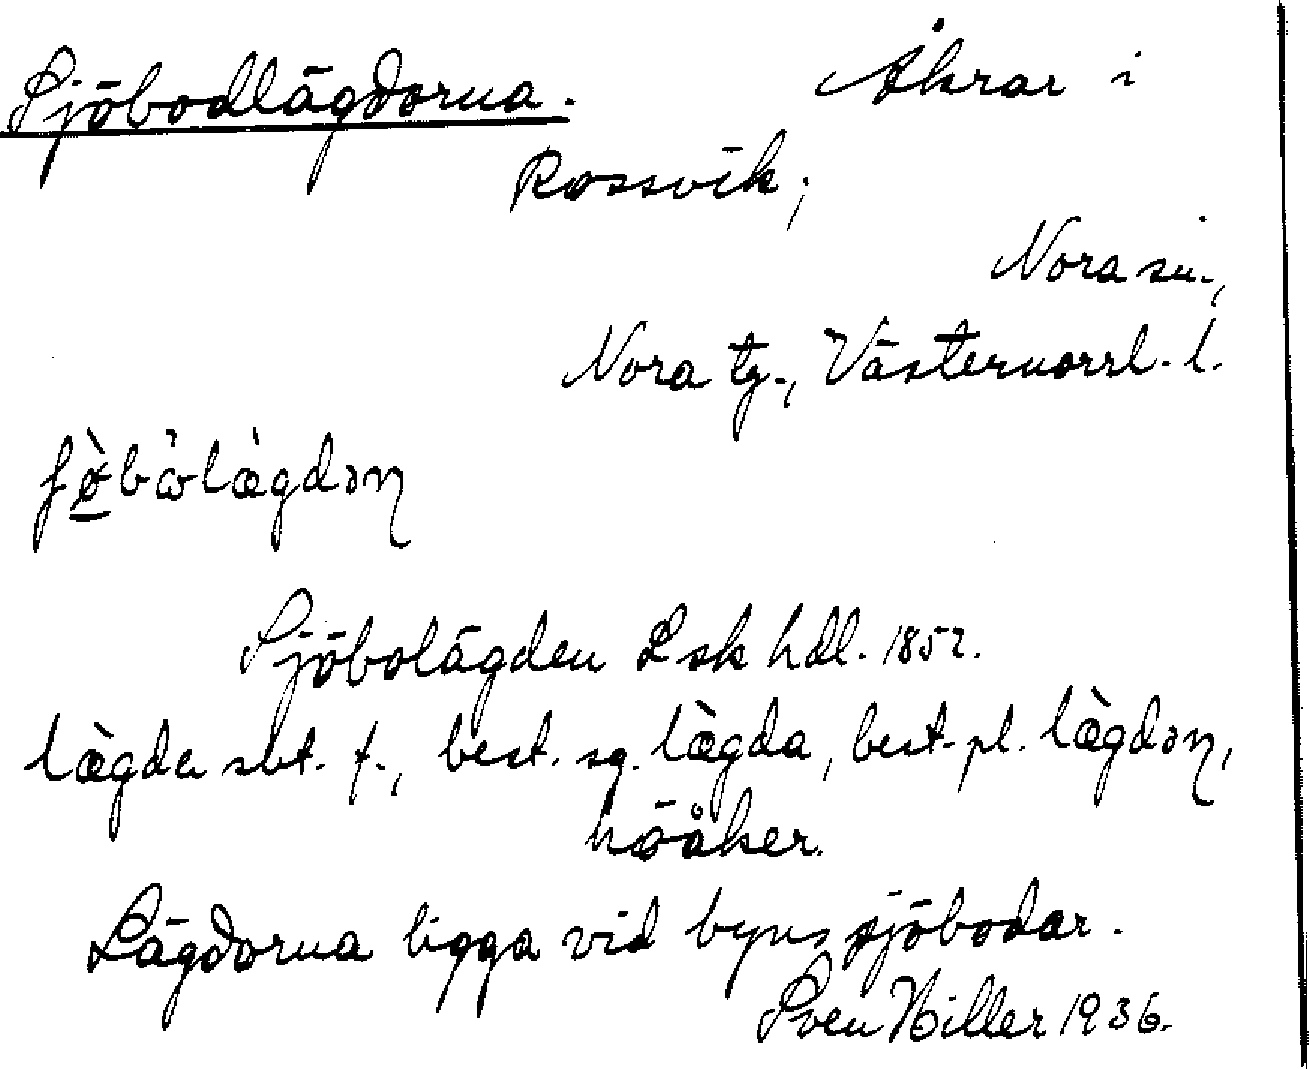 Sjöbodlägdorna. Åkrar i
Rossvik;
Nora sn.,
Nora tg., Västernorrl. l.
Sjöbolägden Lsk hdl. 1852.
lægda sbt. f., best. sg. læ̀gda, best. pl. læ̀gdəɳ,
höåker.
Lägdorna ligga vid byns sjöbodar.
Sven Hiller 1936.